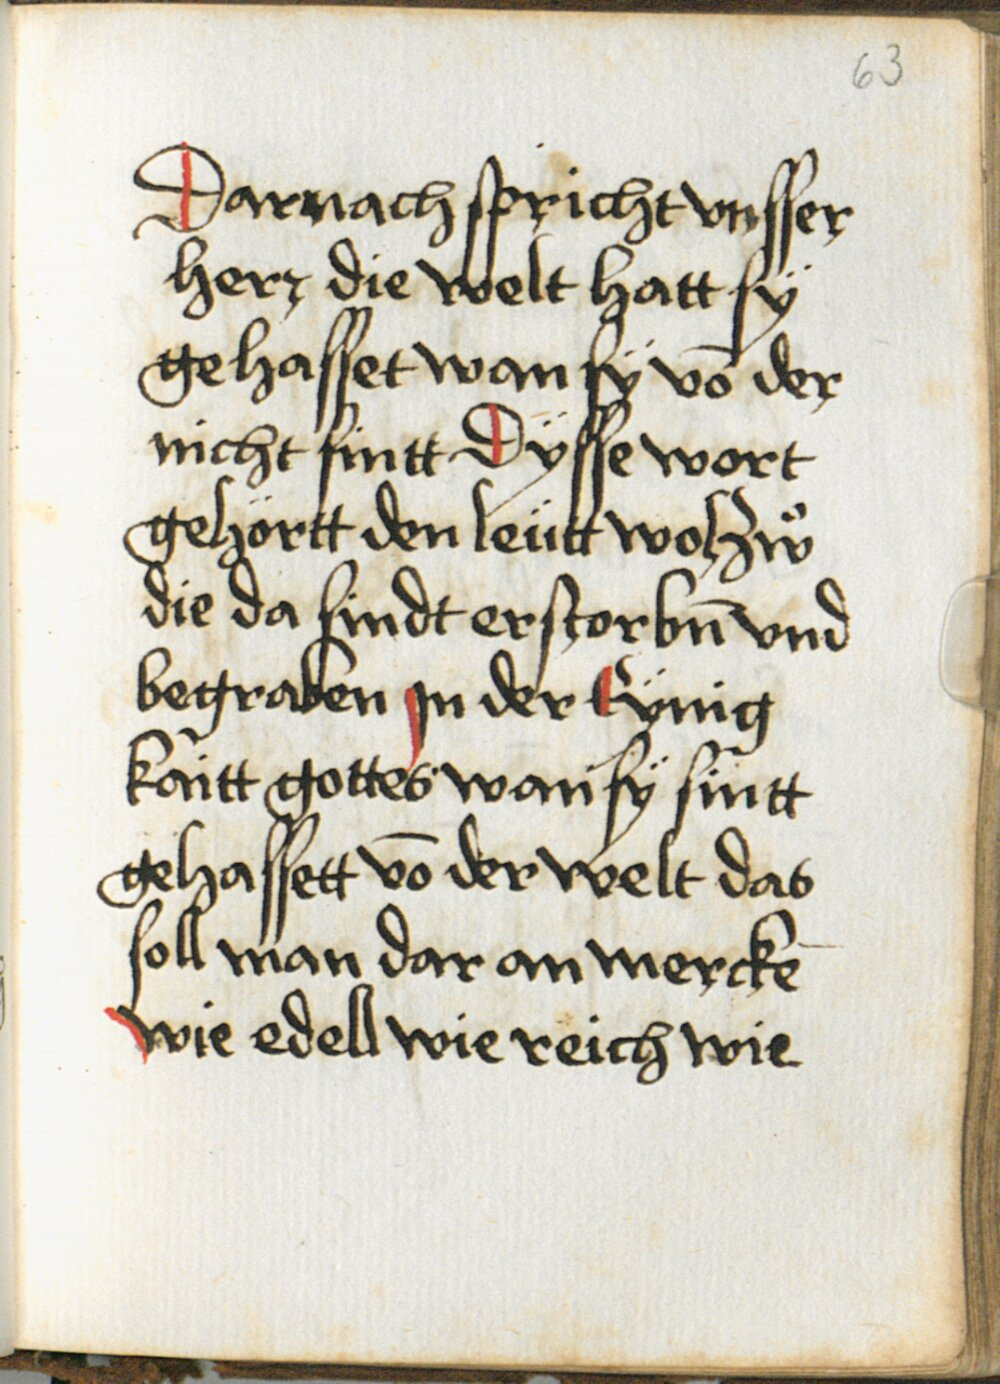 63
Darnach spricht vnsser
herr die welt hatt sÿ
gehasset wan sÿ vō der
nicht sintt Dÿsse wort
gehörtt den leütt wol zwͦ
die da sindt erstorbn̄ vnd
begraben jn der Eÿnig
kaitt gottes wan sÿ sintt
gehassett vō der welt das
soll man dar an merckē
wie edell wie reich wie